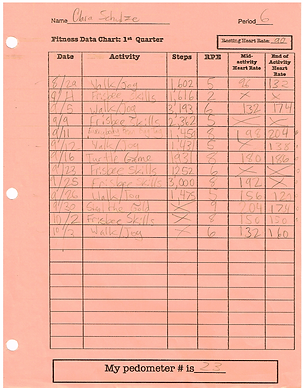 Name Clara Schulze Period 6
Fitness Data Chart: 1st Quarter Resting Heart Rate:
Date Activity Steps RPE Mid-activity Heart Rate End of Activity Heart Rate
8/29 Walk/Jog 1,602 5 96 132
9/4 Frisbee Skills 1,616 2 X X
9/5 Walk/Jog 2,193 6 132 174
9/9 Frisbee Skills 2,362 5 X X
9/11 1,450 8 198 204
9/12 Walk/Jog 1,431 5 X 138
9/16 Turtle Game 1931 8 180 186
9/23 Frisbee Skills 1252 6 X X
9/25 Frisbee Skills 3,000 8 192 X
9/26 Walk/Jog 1,475 5 156
9/30 X 9 204 174
10/2 Frisbee Skills X 8 156 120
10/3 Walk/Jog X 6 132 160
My pedometer # is 23